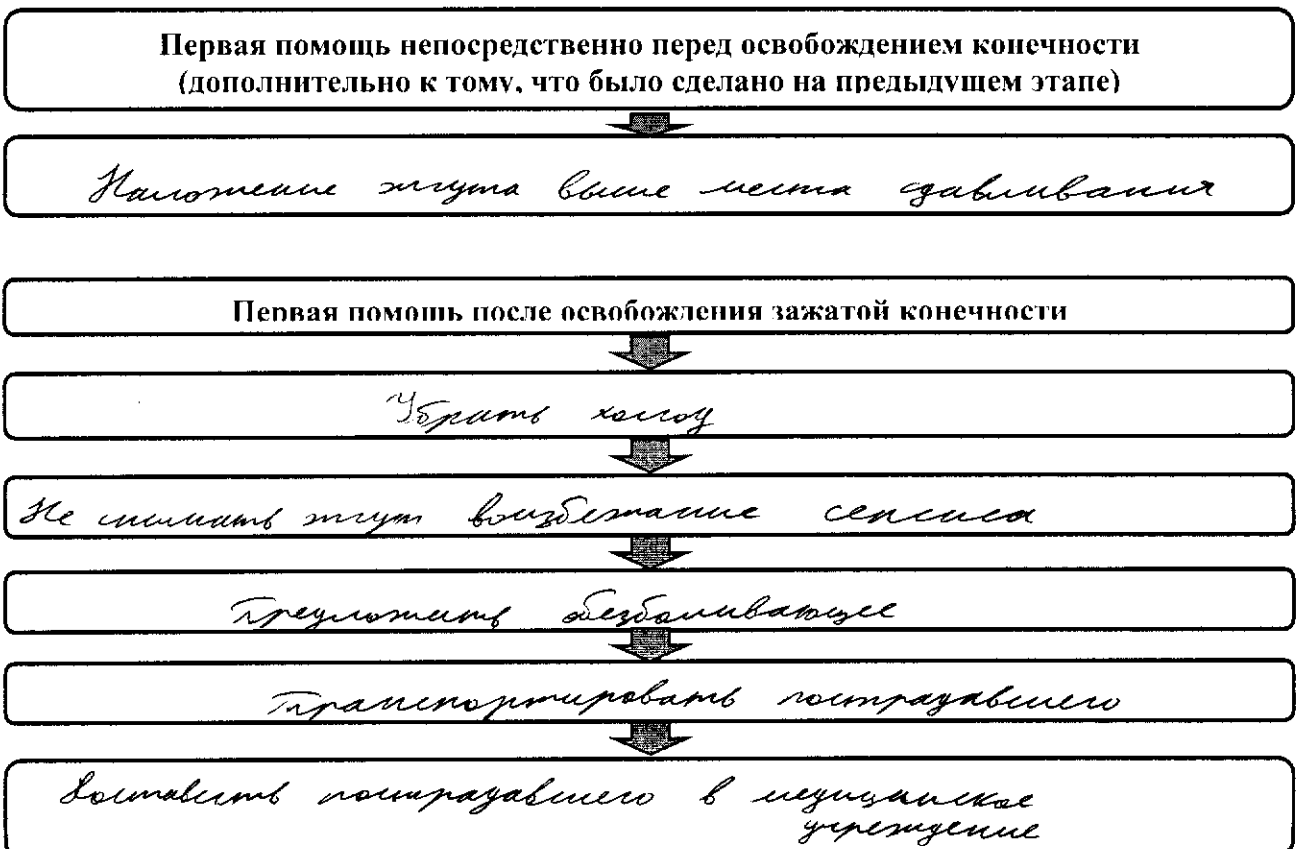 Первая помощь непосредственно перед освобождением конечности
(дополнительно к тому, что было сделано на предыдущем этапе)
Наложение жгута выше места сдавливания
Первая помощь после освобождения зажатой конечности
Убрать холод
Не снимать жгут воизбежание сепсиса
Предложить обезболивающее
Транспортировать пострадавшего
Доставить пострадавшего в медицинское
учреждение